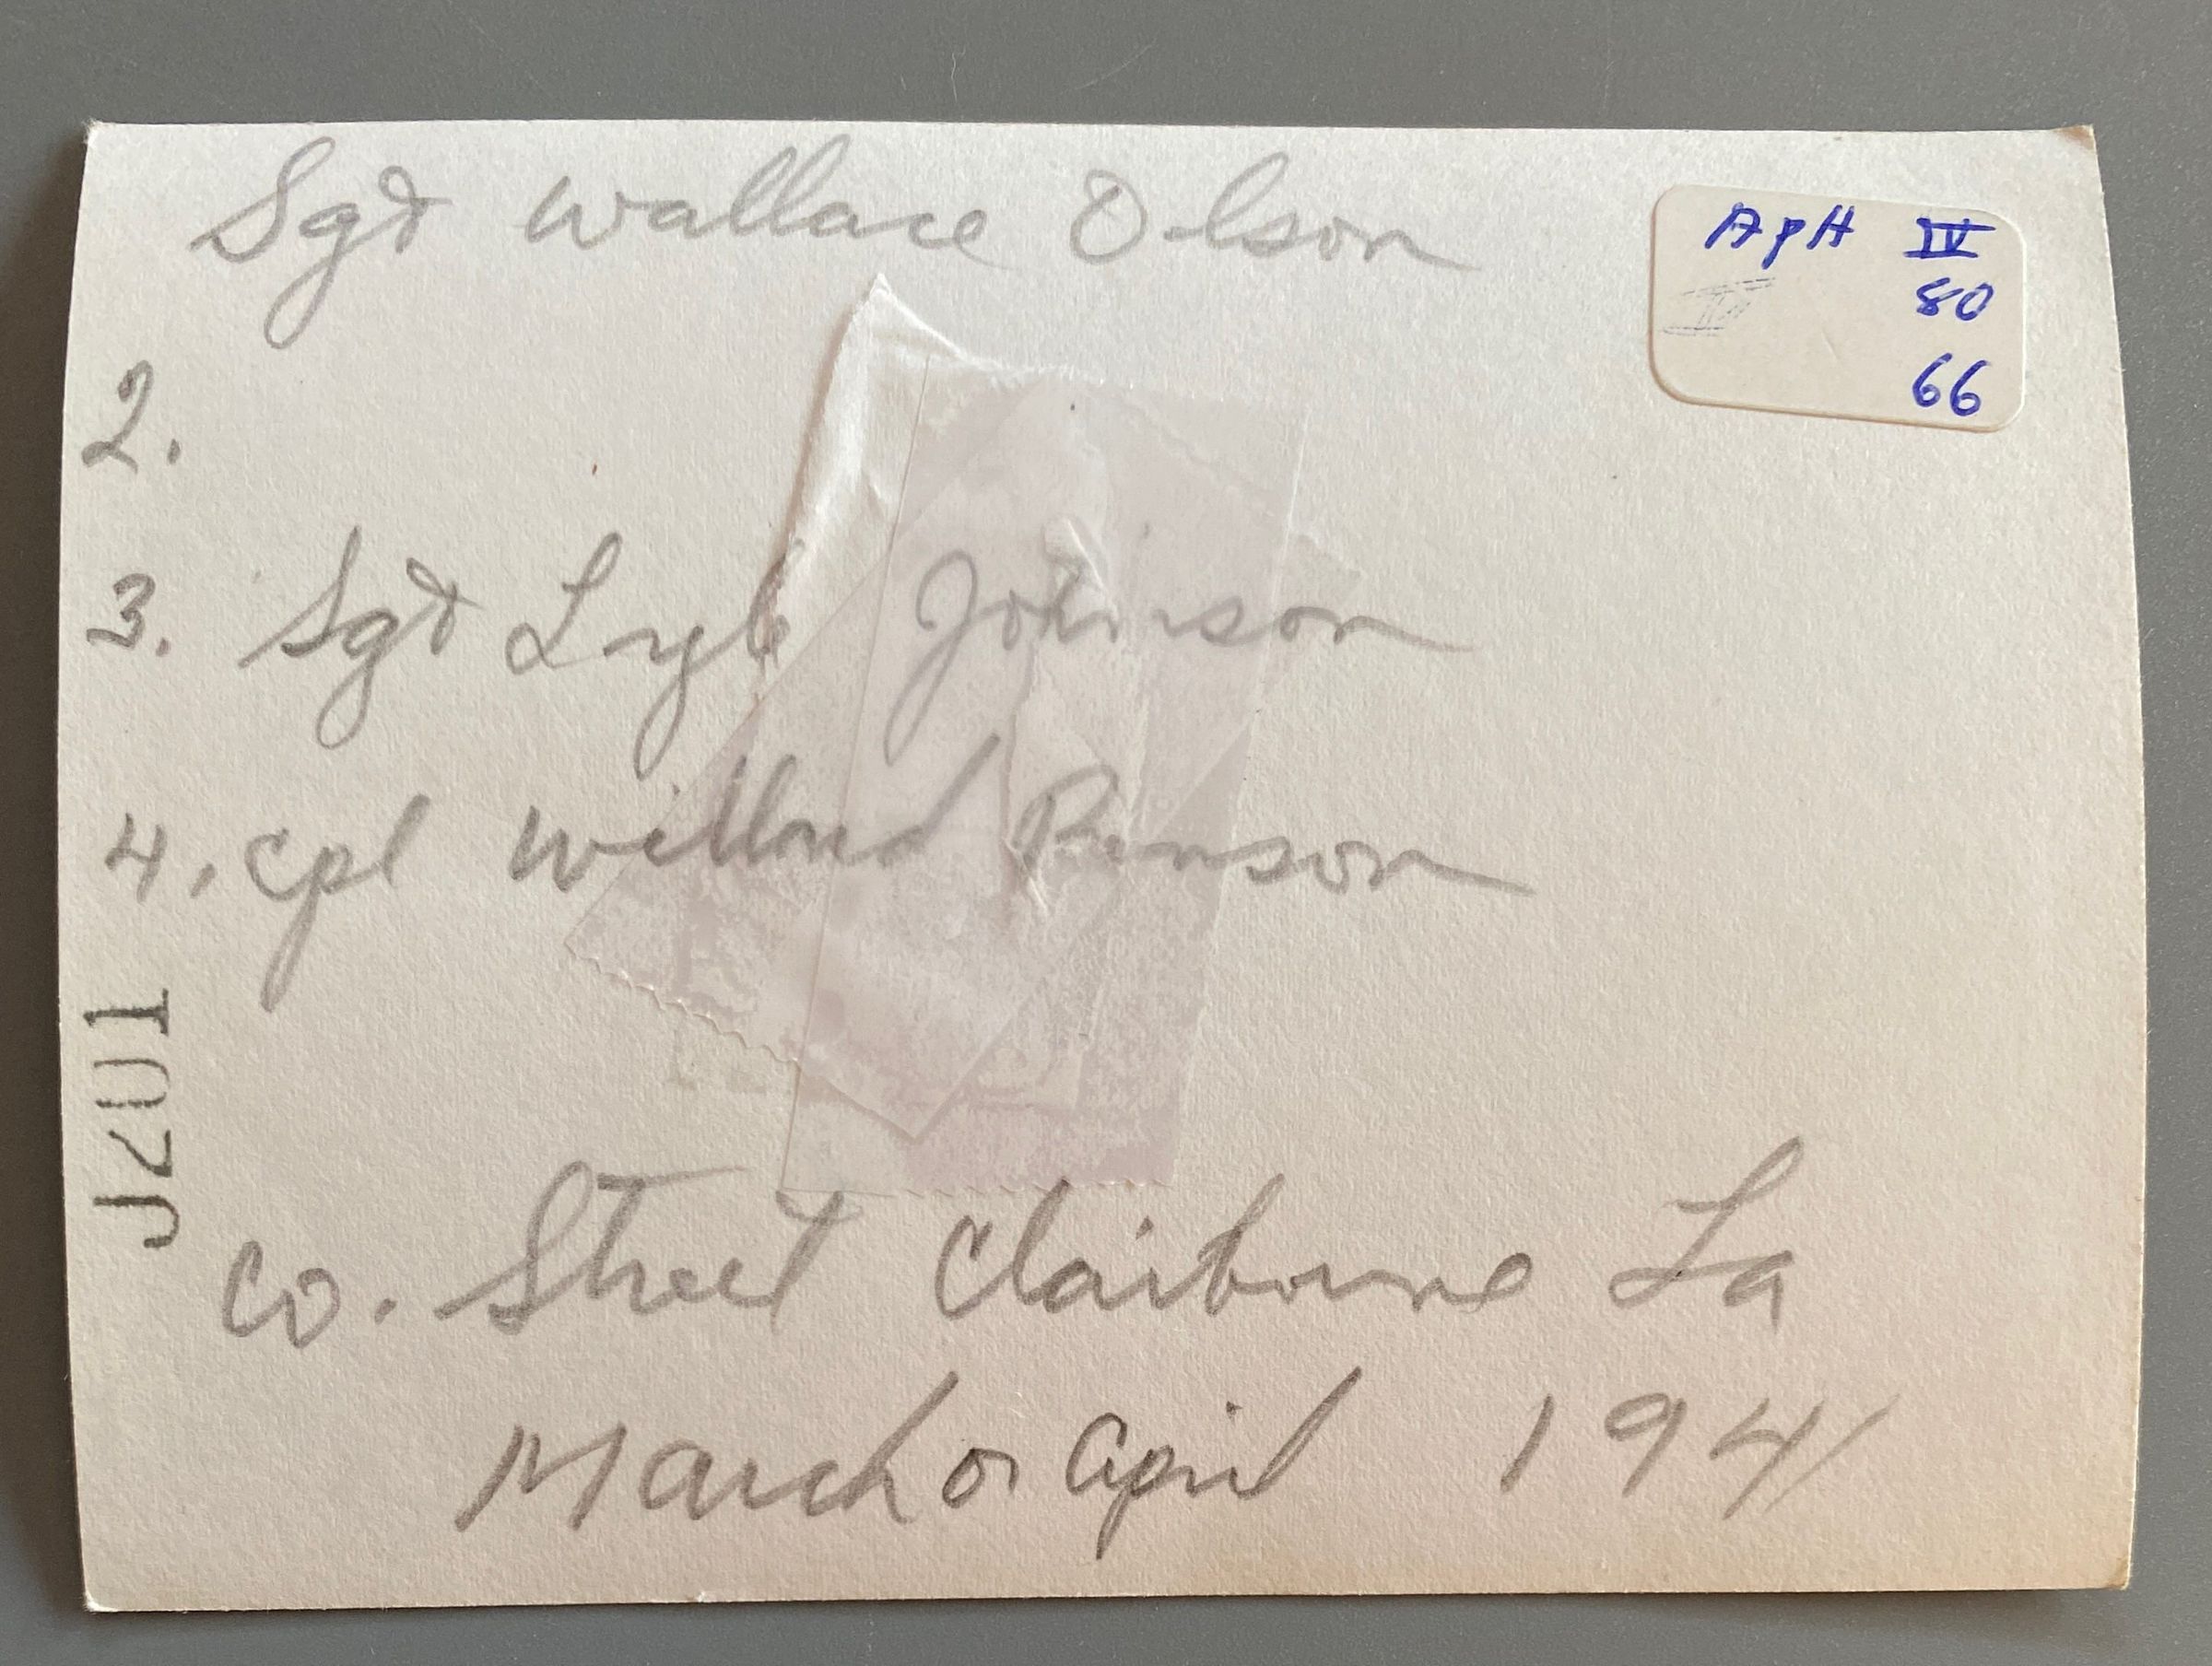 Sgt Wallace Olson
ApH IV
80
66
2.
3. Sgt Lyle Johnson
4. Cpl Willard Benson
J201
Co. Street Claiborne La
March or April 1941